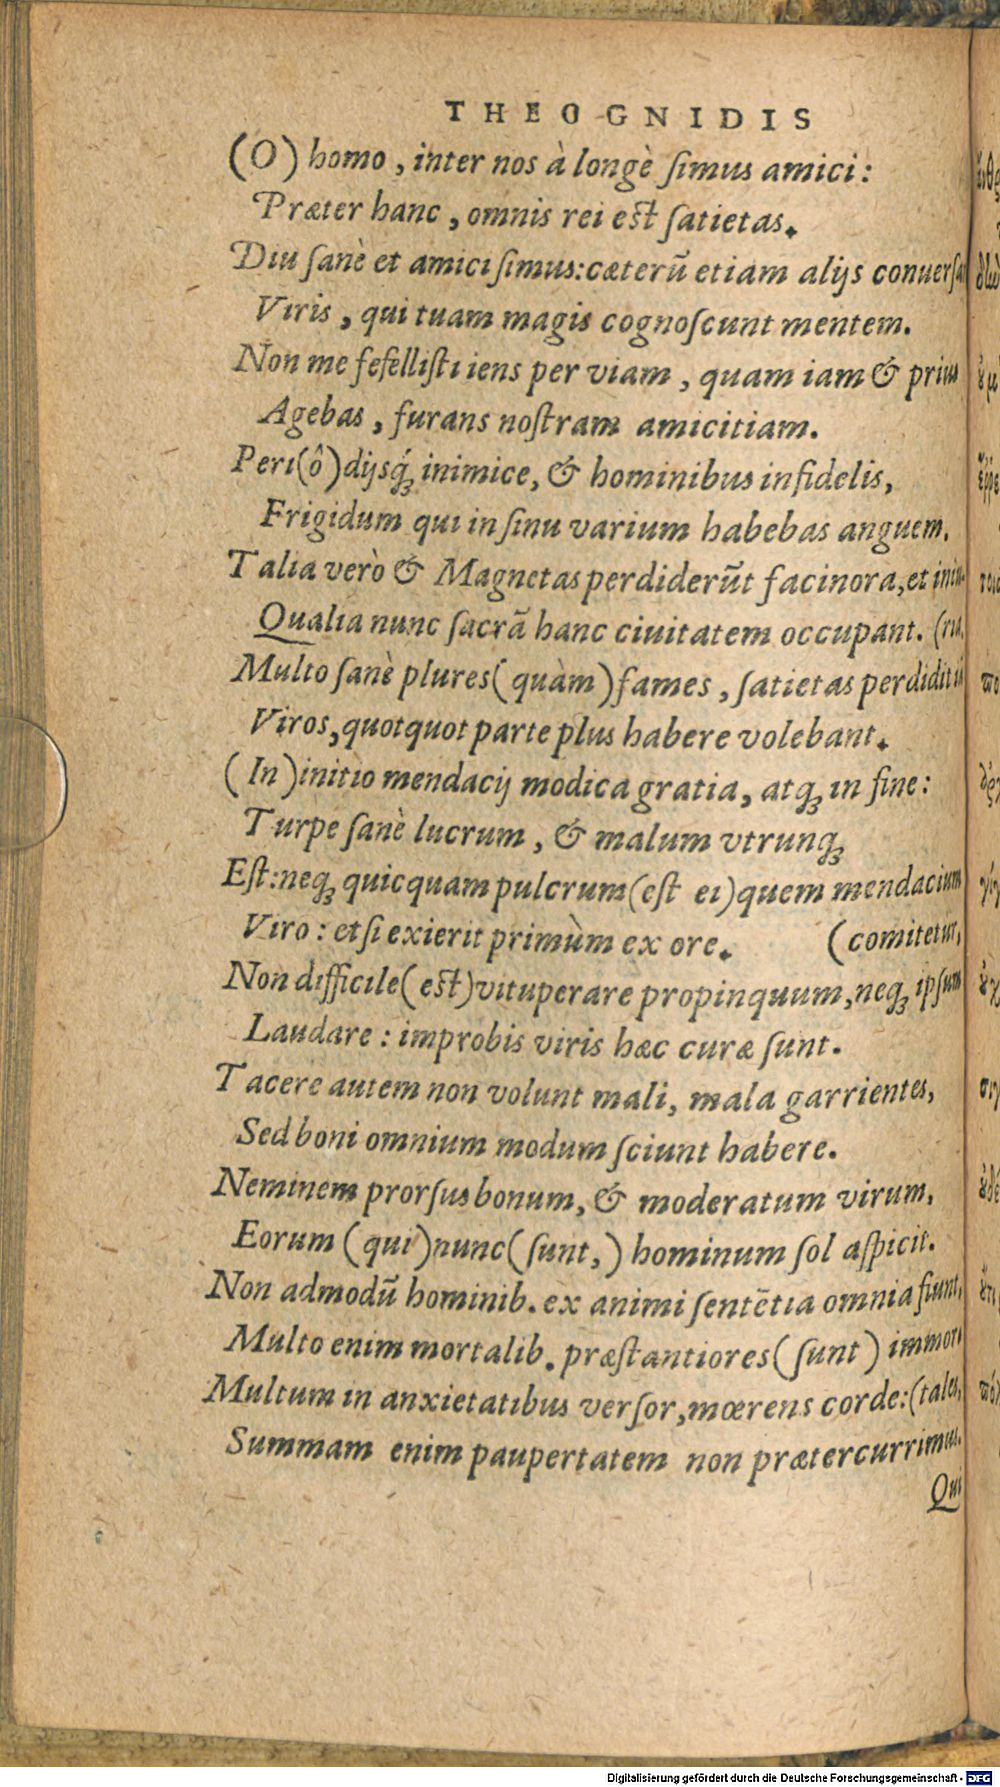 THEOGNIDIS
(O) homo, inter nos à longè ſimus amici:
Præter hanc, omnis rei eſt ſatietas.
Diu ſanè et amici ſimus: cæterũ etiam alijs conuerſa
Viris, qui tuam magis cognoſcunt mentem.
Non me fefelliſti iens per viam, quam iam & prius
Agebas, furans noſtram amicitiam.
Peri(ô)dijsq́; inimice, & hominibus infidelis,
Frigidum qui in ſinu varium habebas anguem.
Talia verò & Magnetas perdiderũt facinora, et iniu-
Qualia nunc ſacrã hanc ciuitatem occupant. (ria,
Multo ſanè plures (quàm) fames, ſatietas perdidit iã
Viros, quotquot parte plus habere volebant.
(In)initio mendacij modica gratia, atq; in fine:
Turpe ſanè lucrum, & malum vtrunq;
Eſt: neq; quicquam pulcrum (eſt ei) quem mendacium
Viro: etſi exierit primùm ex ore. (comitetur,
Non difficile (eſt) vituperare propinquum, neq; ipſum
Laudare: improbis viris hæc curæ ſunt.
Tacere autem non volunt mali, mala garrientes,
Sed boni omnium modum ſciunt habere.
Neminem prorſus bonum, & moderatum virum,
Eorum (qui) nunc (ſunt,) hominum ſol aſpicit.
Non admodũ hominib. ex animi ſentētia omnia fiunt,
Multo enim mortalib. præſtantiores (ſunt) immor
Multum in anxietatibus verſor, mœrens corde: (tales,
Summam enim paupertatem non prætercurrimus.
Qui
Digitalisierung gefördert durch die Deutsche Forschungsgemeinschaft - DFG